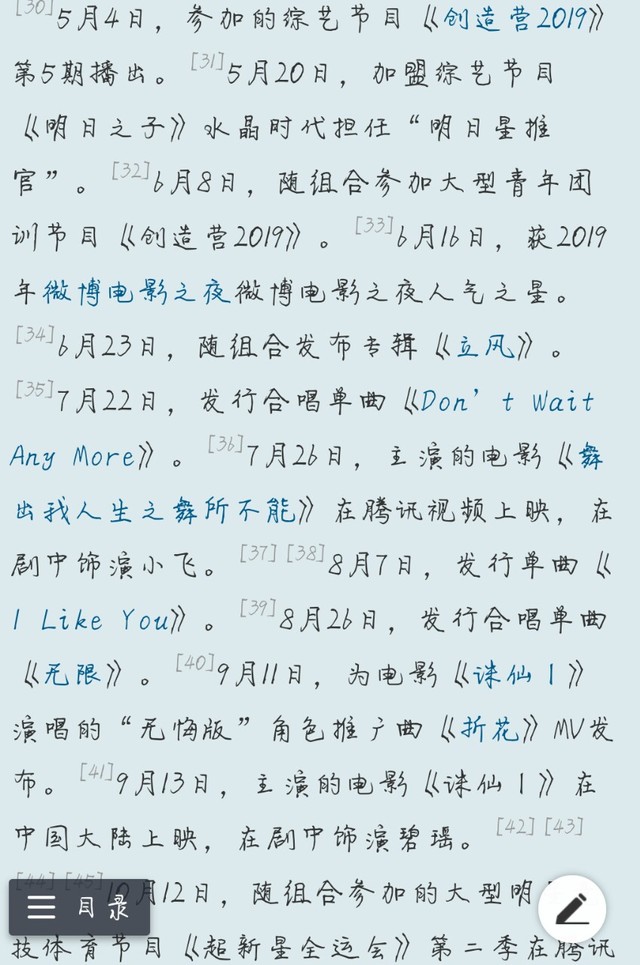 [30]5月4日，参加的综艺节目《创造营2019》
第5期播出。[31]5月20日，加盟综艺节目
《明日之子》水晶时代担任“明日星推
官”。[32]6月8日，随组合参加大型青年团
训节目《创造营2019》。[33]6月16日，获2019
年微博电影之夜微博电影之夜人气之星。
[34]6月23日，随组合发布专辑《立风》。
[35]7月22日，发行合唱单曲《Don't Wait
Any More》。[36]7月26日，主演的电影《舞
出我人生之舞所不能》在腾讯视频上映，在
剧中饰演小飞。[37][38]8月7日，发行单曲《
I Like You》。[39]8月26日，发行合唱单曲
《无限》。[40]9月11日，为电影《诛仙Ⅰ》
演唱的“无悔版”角色推广曲《折花》MV发
布。[41]9月13日，主演的电影《诛仙Ⅰ》在
中国大陆上映，在剧中饰演碧瑶。[42][43]
[44][45]10月12日，随组合参加的大型明
目录
技体育节目《超新星全运会》第二季在腾讯